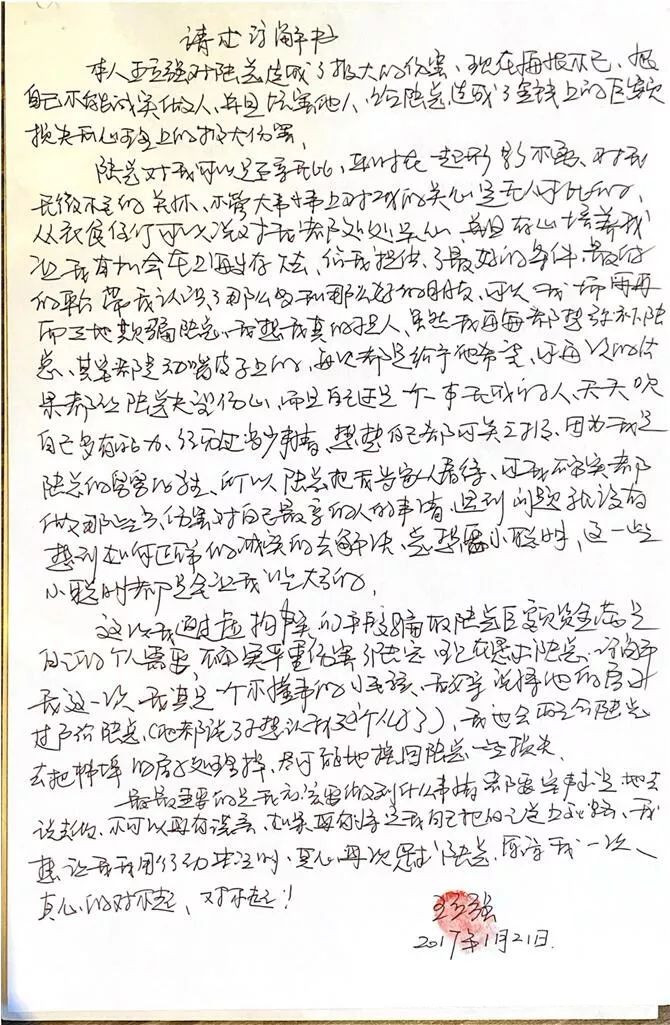 请求谅解书
本人王立强对陆总造成了极大的伤害、现在后悔不已、恨
自己不能诚实做人、并且伤害他人、给陆总造成了金钱上的巨额
损失和心理上的极大伤害。
陆总对我可以是百等无比、平时在一起形影不离、对我
无微不至的关怀、不管大事小事上对我的关心是无人可比的、
从衣食住行可以说对我都处处关心、并且存心培养我
让我有机会在上海生存下去、给我提供了最好的条件、最好
的平台、带我认识了那么多和那么好的朋友、可以我却一而再再
而三地欺骗陆总、我想我真的不是人、虽然我再每都想弥补陆
总、其实都是动嘴皮子上的、每次都是给予他希望、可每次的结
果都让陆总失望伤心、而且自己还是个一事无成的人、天天吹
自己多有能力、经历过多少事情、想想自己都可笑之极、因为我是
陆总的舅舅的学生、所以陆总把我当家人看待、还我不诚实都
做那些伤害对自己最亲的人的事情、遇到问题就没有
想到如何正确的诚实的去解决、总想耍小聪明、这一些
小聪明都是会让我吃大亏的。
这次我通过虚构事实的手段骗取陆总巨额资金满足
自己的个人需要、确实严重伤害了陆总、现在恳求陆总、谅解
我这一次、我真是一个不懂事的小孩、我妈妈说将她的房子
过户给陆总、(她都说了不想认我这个儿子了)、我也会配合陆总
去把蚌埠的房子处理掉、尽可能地挽回陆总一些损失。
最最重要的是我应该要做到什么事情都要实事求是地去
说去做、不可以再有谎言、如果再有将是我自己把自己送上绝路、我
想让我用行动来证明、真心再次恳求陆总、原谅我一次、
真心的对不起、对不起！
王立强
2017年1月21日.